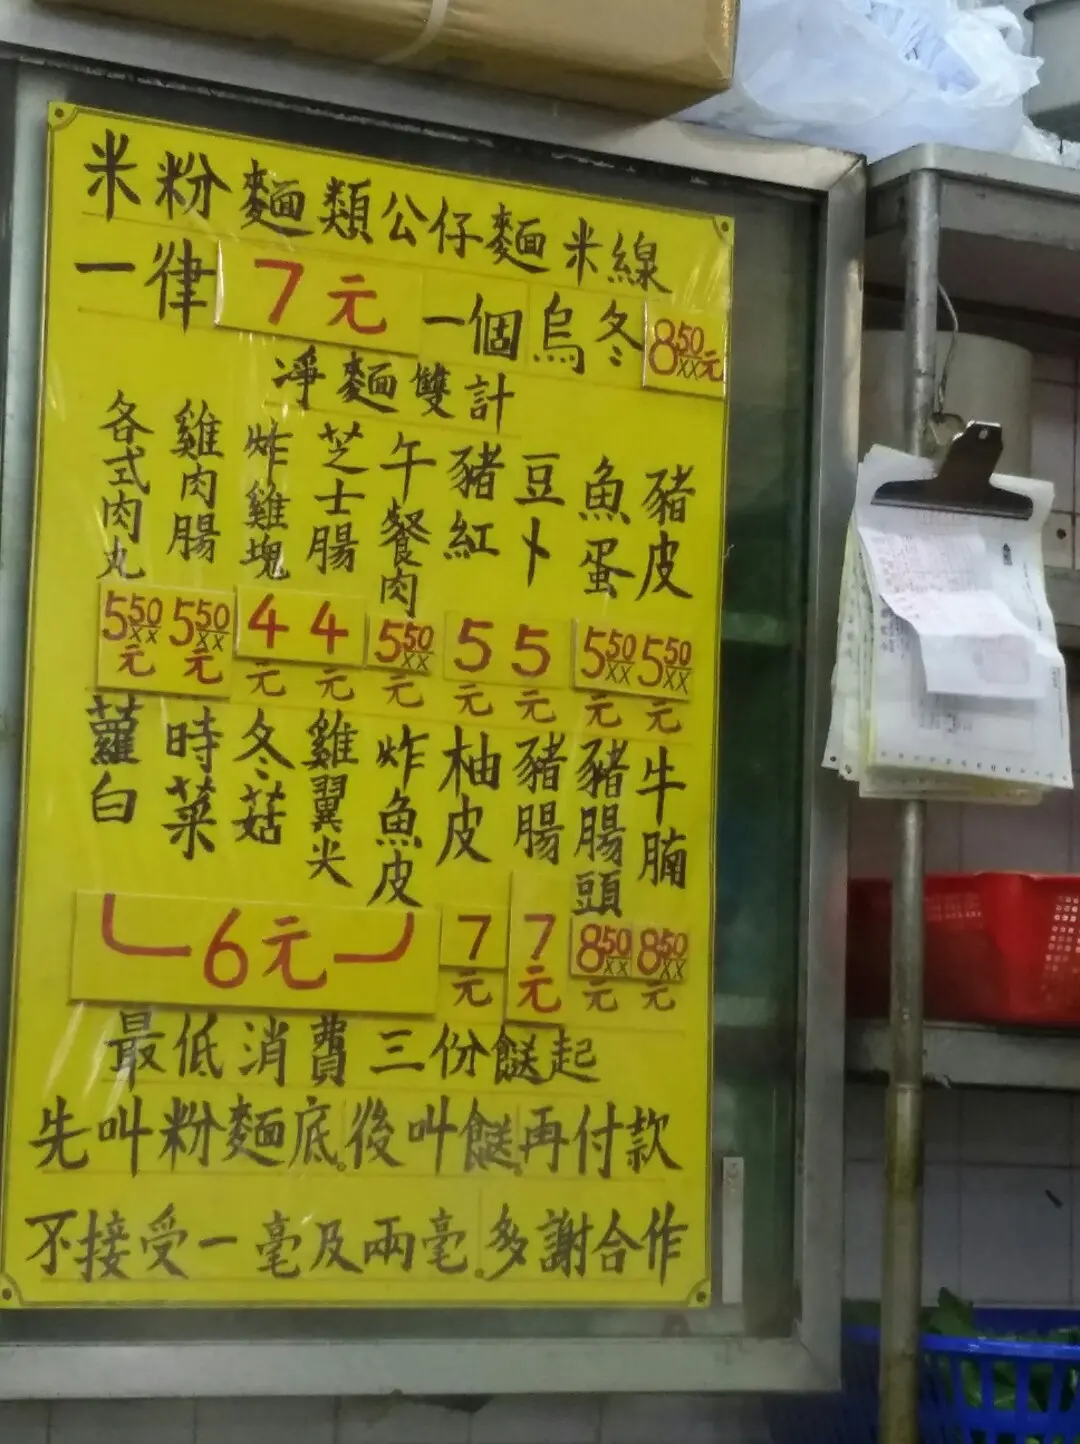 米粉麵類公仔麵米線
一律7元 一個烏冬8.50元
淨麵雙計
各式肉丸 雞肉腸 炸雞塊 芝士腸 午餐肉 豬紅 豆卜 魚蛋 豬皮
5 50/XX元 5 50/XX元 4元 4元 5 50/XX元 5元 5元 5 50/XX元 5 50/XX元
蘿白 時菜 冬菇 雞翼尖 炸魚皮 柚皮 豬腸 豬腸頭 牛腩
6元 7元 7元 8 50/XX元 8 50/XX元
最低消費三份餸起
先叫粉麵底。後叫餸,再付款
不接受一毫及兩毫。多謝合作